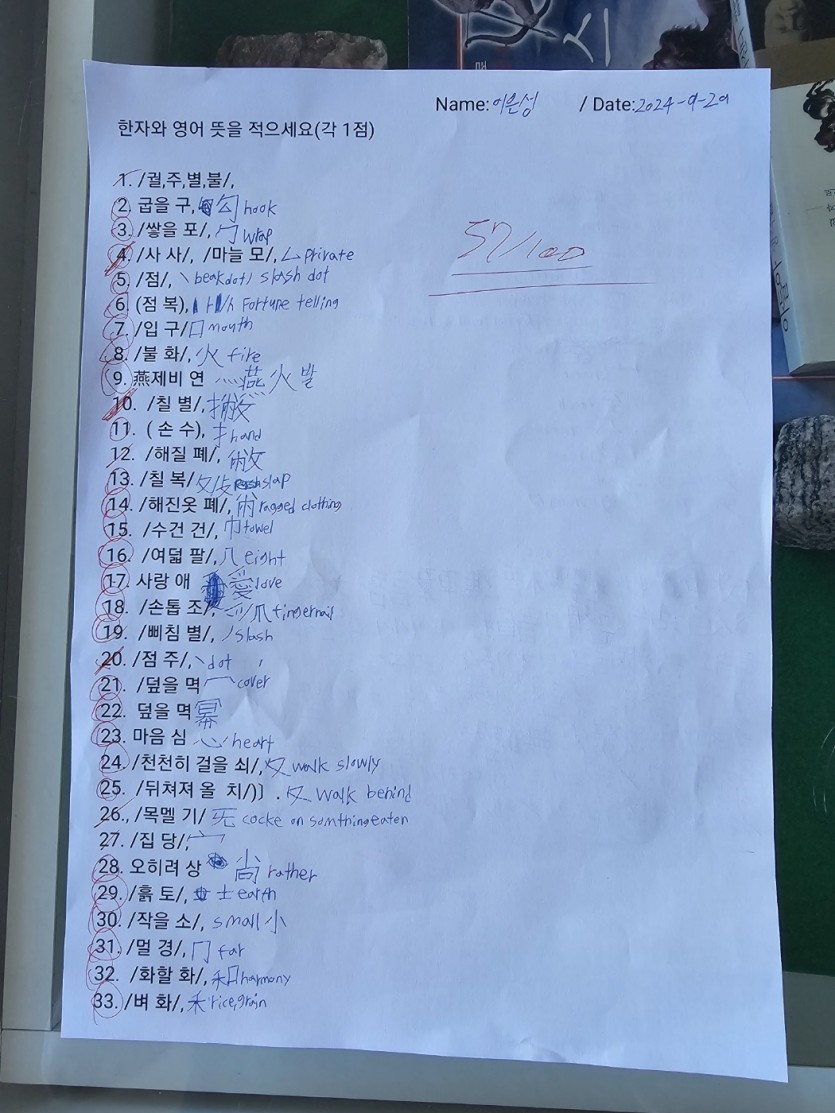 Name: 이은성 / Date: 2024-9-20
한자와 영어 뜻을 적으세요(각 1점)
57/100
1. /궐,주,별,불/,
2. 굽을 구, 勾 hook
3. /쌓을 포/, 勹 wrap
4. /사 사/, /마늘 모/, 厶 private
5. /점/, 丶 beakdot/ slash dot
6. (점 복), 卜 Fortune telling
7. /입 구/ 口 mouth
8. /불 화/, 火 fire
9. 燕제비 연 灬 燕 火 발
10. /칠 별/, 撇
11. ( 손 수), 扌 hand
12. /해질 폐/, 敝
13. /칠 복/ 攵 攴 slap
14. /해진옷 폐/, 㡀 ragged clothing
15. /수건 건/, 巾 towel
16. /여덟 팔/, 八 eight
17. 사랑 애 愛 love
18. /손톱 조/, 爫 爪 fingernail
19. /삐침 별/, 丿 slash
20. /점 주/, 丶 dot
21. /덮을 멱 冖 cover
22. 덮을 멱 冪
23. 마음 심 心 heart
24. /천천히 걸을 쇠/, 夊 walk slowly
25. /뒤쳐져 올 치/)〕. 夂 walk behind
26., /목멜 기/ 旡 cocke on somthing eaten
27. /집 당/,
28. 오히려 상 尙 rather
29. /흙 토/, 土 earth
30. /작을 소/, small 小
31. /멀 경/, 冂 far
32. /화할 화/, 和 harmony
33. /벼 화/, 禾 rice, grain